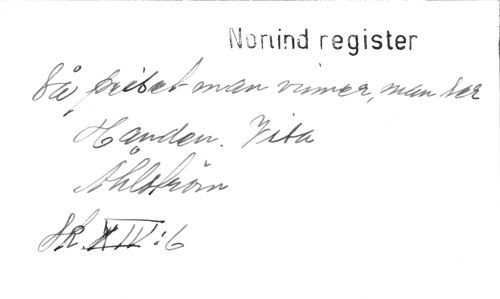 Nonind register
Så, priset man vinner, man ser
Handen. Visa
Ahlström
SK. XIV:6